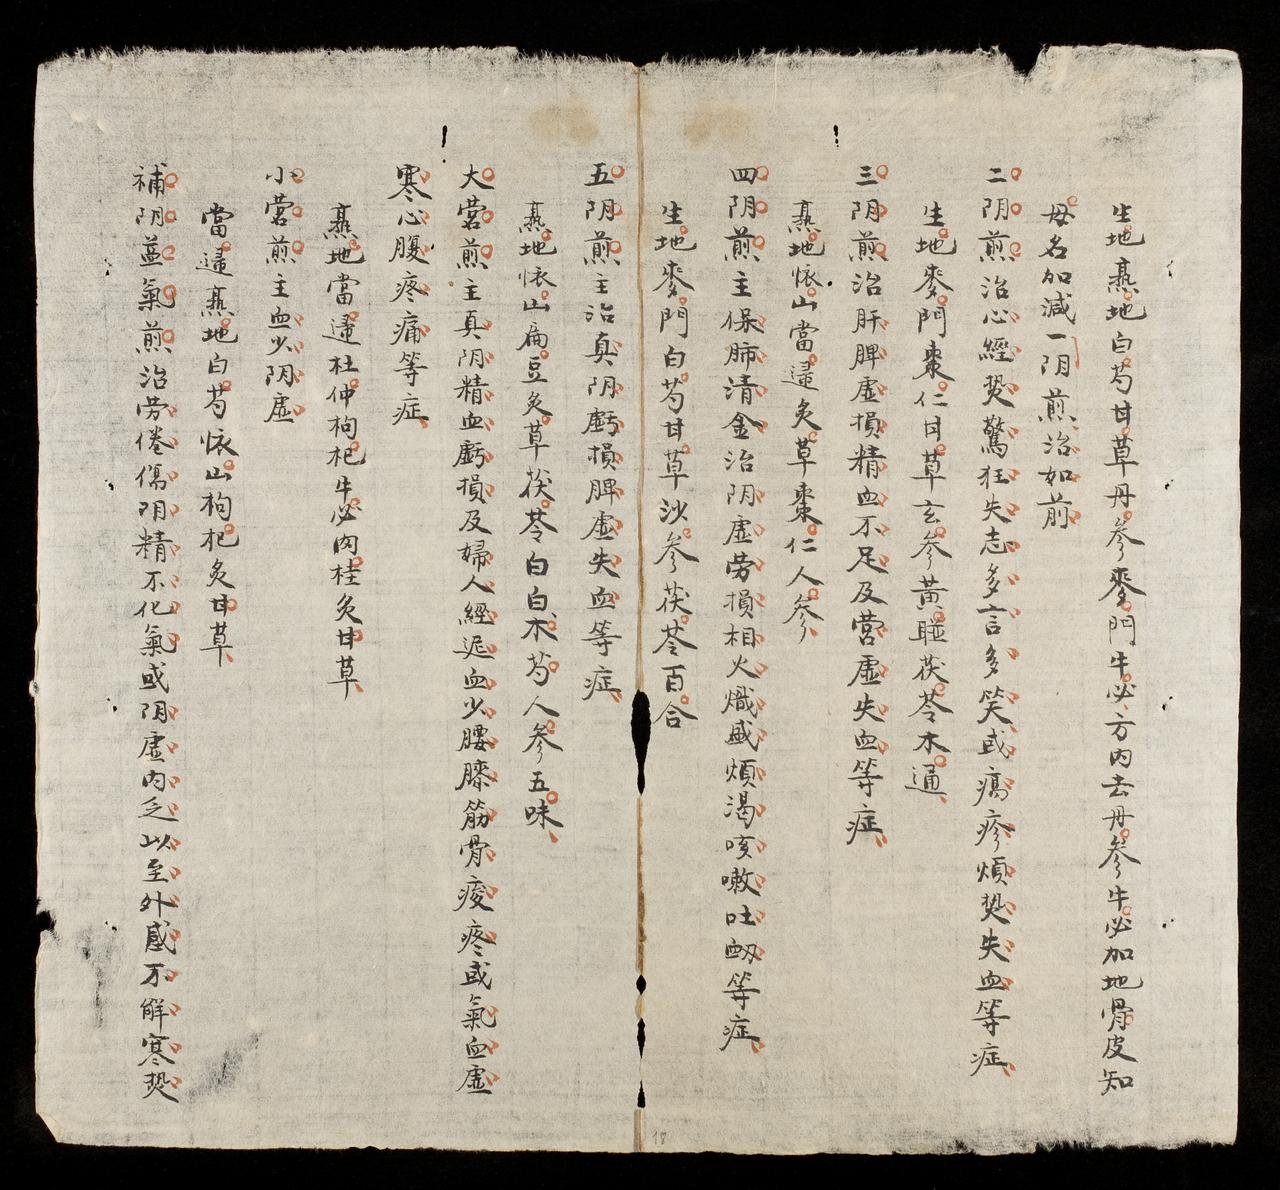 生地熹地白芍甘草丹參麥門牛必方内去丹參牛必加地骨皮知
母名加減一阴煎治如前
二阴煎治心經𤍠驚狂失志多言多笑或瘍疹煩𤍠失血等症
生地麥門棗仁甘草玄參黃𦗁茯苓木通
三阴煎治肝脾虚損精血不足及营虚失血等症
熹地懷山當歸炙草棗仁人參
四阴煎主保肺清金治阴虚劳損相火熾盛煩渴咳嗽吐衂等症
生地麥門白芍甘草沙參茯苓百合
五阴煎主治真阴虧損脾虚失血等症
熹地懷山扁豆炙草茯苓白白术芍人參五味
大营煎主真阴精血虧損及婦人經遲血少腰膝筋骨痠疼或氣血虚
寒心腹疼痛等症
熹地當歸杜仲枸杞牛必肉桂炙甘草
小营煎主血少阴虚
當歸熹地白芍懷山枸杞炙甘草
補阴益氣煎治劳倦傷阴精不化氣或阴虚内乏以至外感不解寒𤍠
18